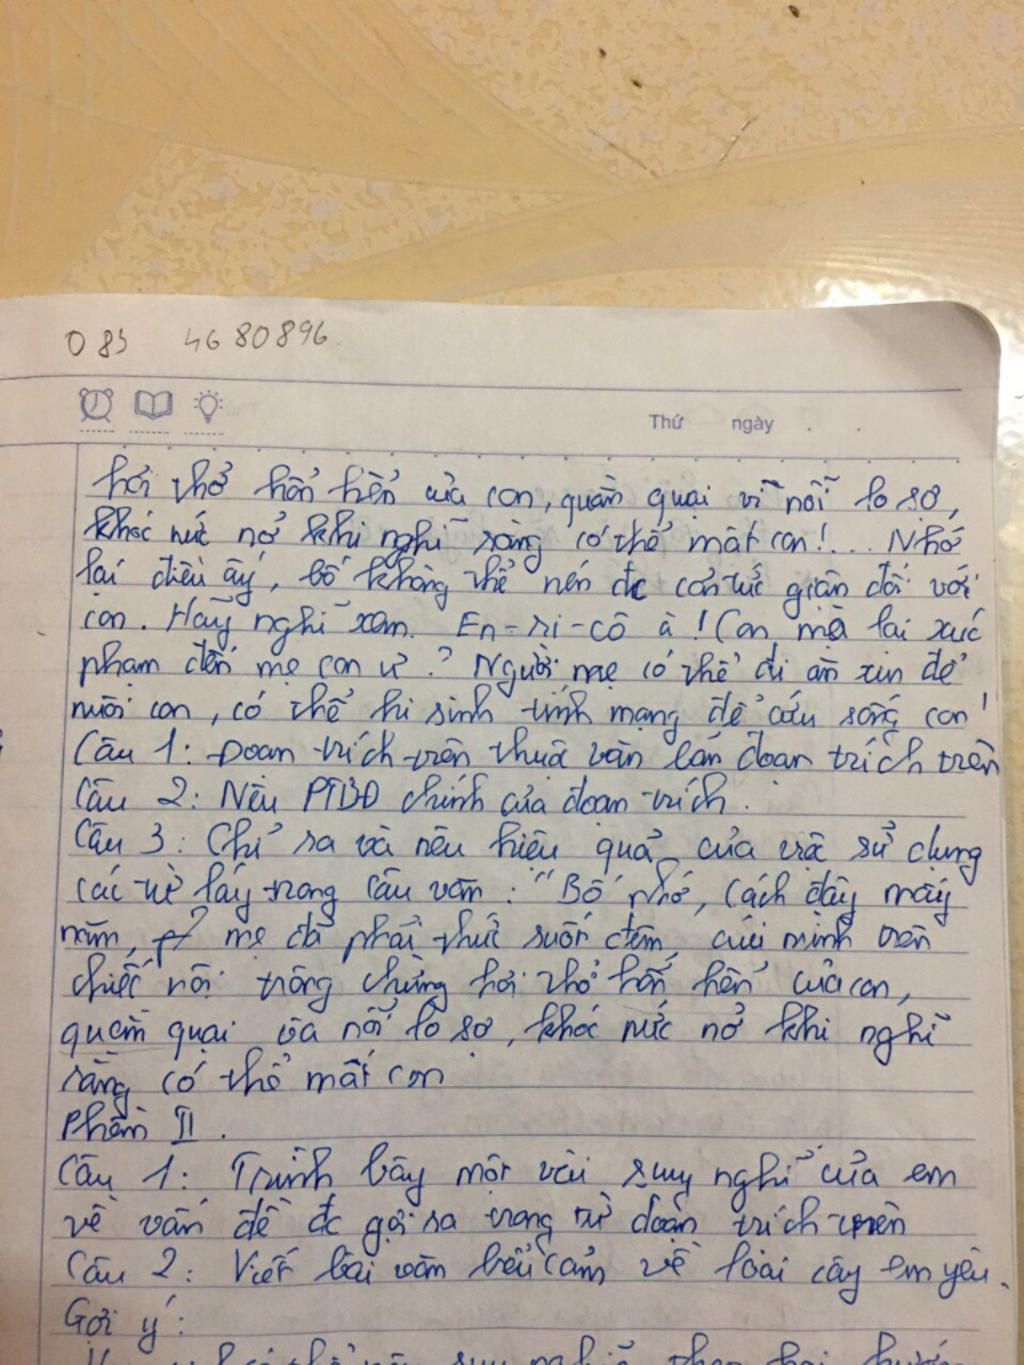 083 4680896.
Thứ ngày . .
hơi thở hổn hển của con, quằn quại vì nỗi lo sợ,
khóc nức nở khi nghĩ rằng có thể mất con!... Nhớ
lại điều ấy, bố không thể nén đc cơn tức giận đối với
con. Hãy nghĩ xem. En-ri-cô à! Con mà lại xúc
phạm đến mẹ con ư? Người mẹ có thể đi ăn xin để
nuôi con, có thể hi sinh tính mạng để cứu sống con!
Câu 1: Đoạn trích trên thuộc văn bản đoạn trích trên
Câu 2: Nêu PTBĐ chính của đoạn trích.
Câu 3: Chỉ ra và nêu hiệu quả của việc sử dụng
các từ láy trong câu văn: "Bố nhớ, cách đây mấy
năm, mẹ đã phải thức suốt đêm, cúi mình trên
chiếc nôi trông chừng hơi thở hổn hển của con,
quằn quại vìa nỗi lo sợ, khóc nức nở khi nghĩ
rằng có thể mất con
Phần II.
Câu 1: Trình bày một vài suy nghĩ của em
về vấn đề đc gợi ra trong từ đoạn trích trên
Câu 2: Viết bài văn biểu cảm về loài cây em yêu.
Gợi ý: